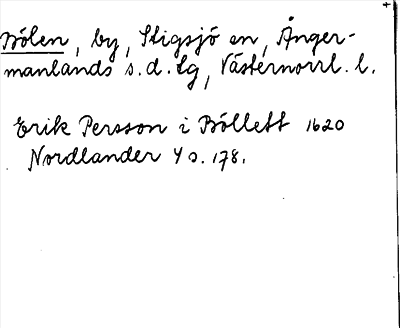 Bölen, by, Stigsjö sn, Ånger-
manlands s. d. tg, Västernorrl. l.
Erik Persson i Böllett 1620
Nordlander 4 s. 178.